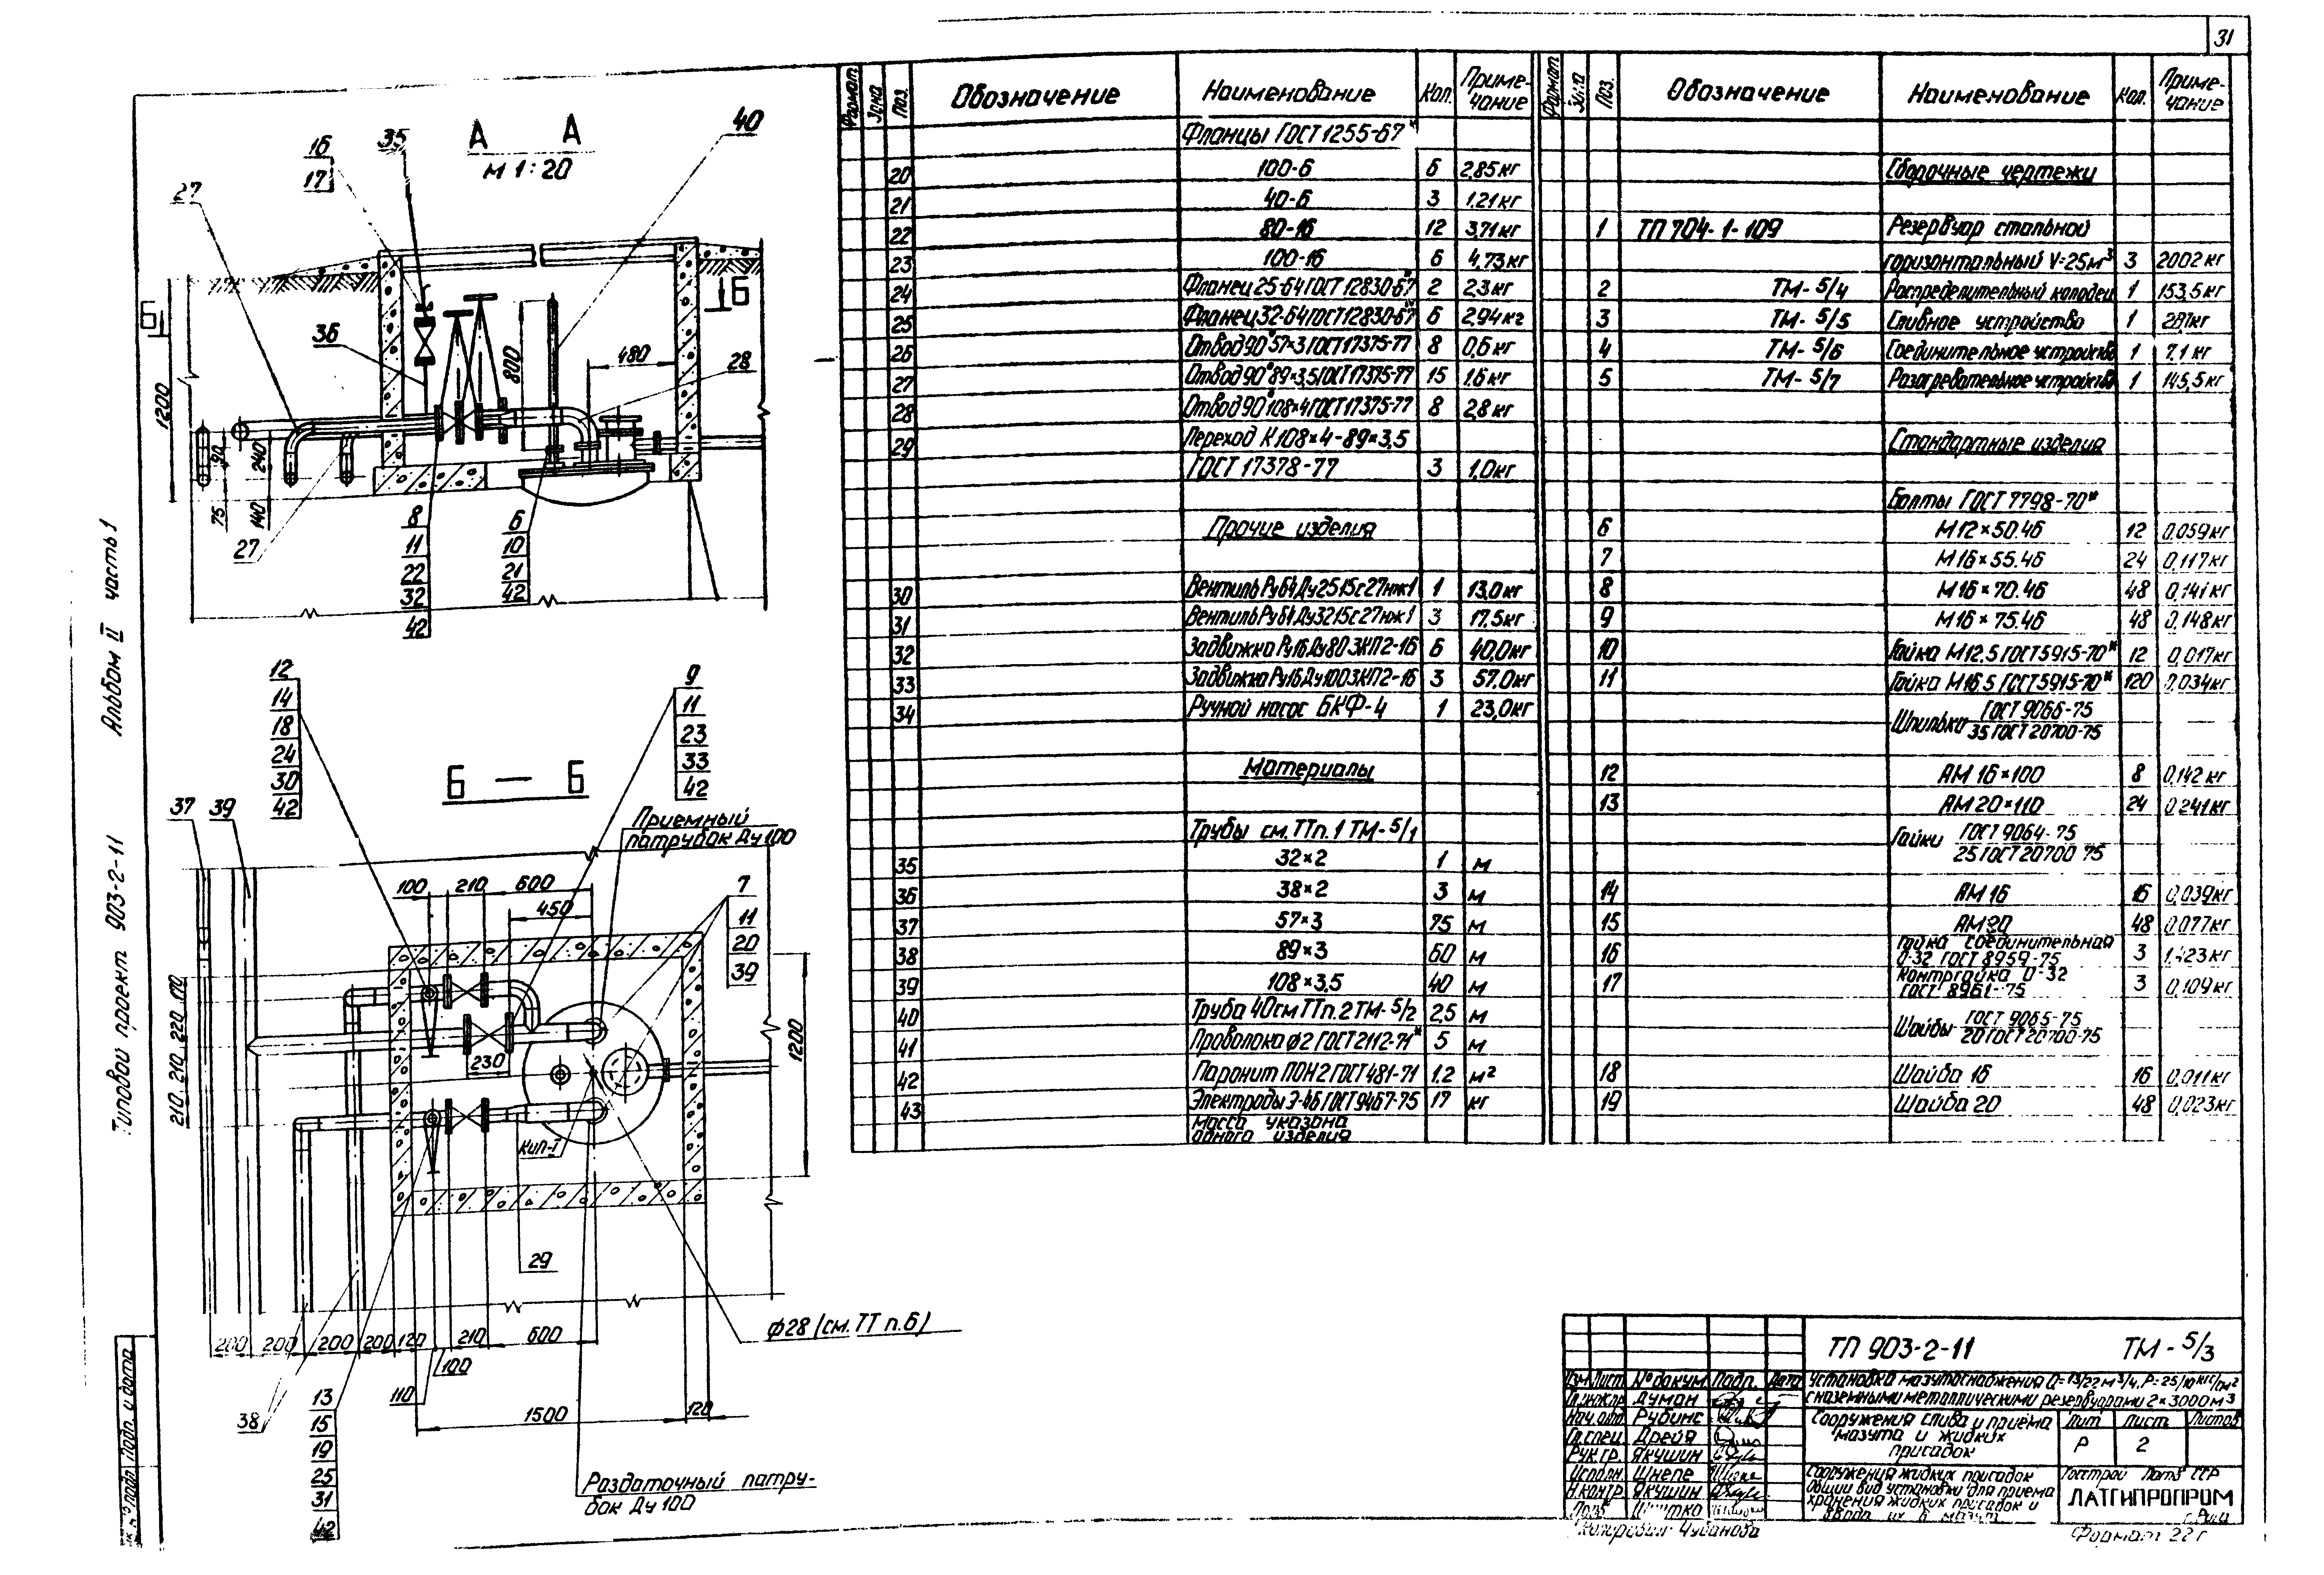 31
А А
М 1:20
16
17
35
40
27
Б
Б
36
800
480
28
1200
90
240
75
140
27
8
11
22
32
42
6
10
21
42
Альбом II часть 1
Типовой проект 903-2-11
12
14
18
24
30
42
9
11
23
33
42
Б — Б
37
39
Приемный
патрубок Ду 100
100
210
600
450
7
11
20
39
210 210 220 170
230
1200
КИП-I
29
ф28 (см. ТТ п.6)
200
200
200
200
120
210
600
100
110
1500
120
38
13
15
19
25
31
42
Раздаточный патру-
бок Ду 100
Формат Зона Поз. Обозначение Наименование Кол. Приме-
чание
Фланцы ГОСТ 1255-67*
20 100-6 6 2,85кг
21 40-6 3 1,21кг
22 80-16 12 3,71кг
23 100-16 6 4,73кг
24 Фланец 25-64 ГОСТ 12830-67* 2 2,3кг
25 Фланец 32-64 ГОСТ 12830-67* 6 2,94кг
26 Отвод 90°57×3 ГОСТ 17375-77 8 0,6кг
27 Отвод 90°89×3,5 ГОСТ 17375-77 15 1,6кг
28 Отвод 90°108×4 ГОСТ 17375-77 8 2,8кг
29 Переход К 108×4-89×3,5
ГОСТ 17378-77 3 1,0кг
Прочие изделия
30 Вентиль Ру64 Ду25 15с27нж1 1 13,0кг
31 Вентиль Ру64 Ду32 15с27нж1 3 17,5кг
32 Задвижка Ру16 Ду80 ЗКЛ2-16 6 40,0кг
33 Задвижка Ру16 Ду100 ЗКЛ2-16 3 57,0кг
34 Ручной насос БКФ-4 1 23,0кг
Материалы
Трубы см. ТТп.1 ТМ-5/1
35 32×2 1 м
36 38×2 3 м
37 57×3 75 м
38 89×3 60 м
39 108×3,5 40 м
40 Труба 40 см ТТп.2 ТМ-5/2 2,5 м
41 Проволока ф2 ГОСТ 2112-71* 5 м
42 Паронит ПОН 2 ГОСТ 481-71 1,2 м²
43 Электроды Э-46 ГОСТ 9467-75 17 кг
масса указана
одного изделия
Формат Поз. Обозначение Наименование Кол. Приме-
чание
Сборочные чертежи
1 ТП 704-1-109 Резервуар стальной
горизонтальный V=25м³ 3 2002 кг
2 ТМ-5/4 Распределительный колодец 1 153,5кг
3 ТМ-5/5 Сливное устройство 1
4 ТМ-5/6 Соединительное устройство 1 7,1 кг
5 ТМ-5/7 Разогревательное устройство 1 145,5кг
Стандартные изделия
Болты ГОСТ 7798-70*
6 М12×50.46 12 0,059кг
7 М16×55.46 24 0,117кг
8 М16×70.46 48 0,141кг
9 М16×75.46 48 0,148кг
10 Гайка М12.5 ГОСТ 5915-70* 12 0,017кг
11 Гайка М16.5 ГОСТ 5915-70* 120 0,034кг
Шпилька ГОСТ 9066-75
35 ГОСТ 20700-75
12 АМ 16×100 8 0,142 кг
13 АМ 20×110 24 0,241кг
Гайки ГОСТ 9064-75
25 ГОСТ 20700-75
14 АМ 16 16 0,039кг
15 АМ 20 48 0,077кг
16 Гайка соединительная
О-32 ГОСТ 8959-75 3
17 Контргайка О-32
ГОСТ 8961-75 3 0,109кг
Шайбы ГОСТ 9065-75
20 ГОСТ 20700-75
18 Шайба 16 16 0,011кг
19 Шайба 20 48 0,023кг
ТП 903-2-11 ТМ-5/3
Изм Лист № докум Подп. Дата
Гл.инж.пр Думан
Нач.отд Рубинс
Гл.спец Дрейя
Рук.гр. Якушин
Исполн. Шнепе
Н.контр. Якушин
Установка мазутоснабжения Q=13/22 м³/ч, Р=25/10 кгс/см²
с наземными металлическими резервуарами 2×3000 м³
Сооружения слива и приема
мазута и жидких
присадок
Лит. Лист Листов
Р 2
Сооружения жидких присадок
Общий вид установки для приема
хранения жидких присадок и
ввода их в мазут
Госстрой Латв. ССР
ЛАТГИПРОПРОМ
г. Рига
Копировал Чубанова
Формат 22г
Инв № подл. Подп. и дата